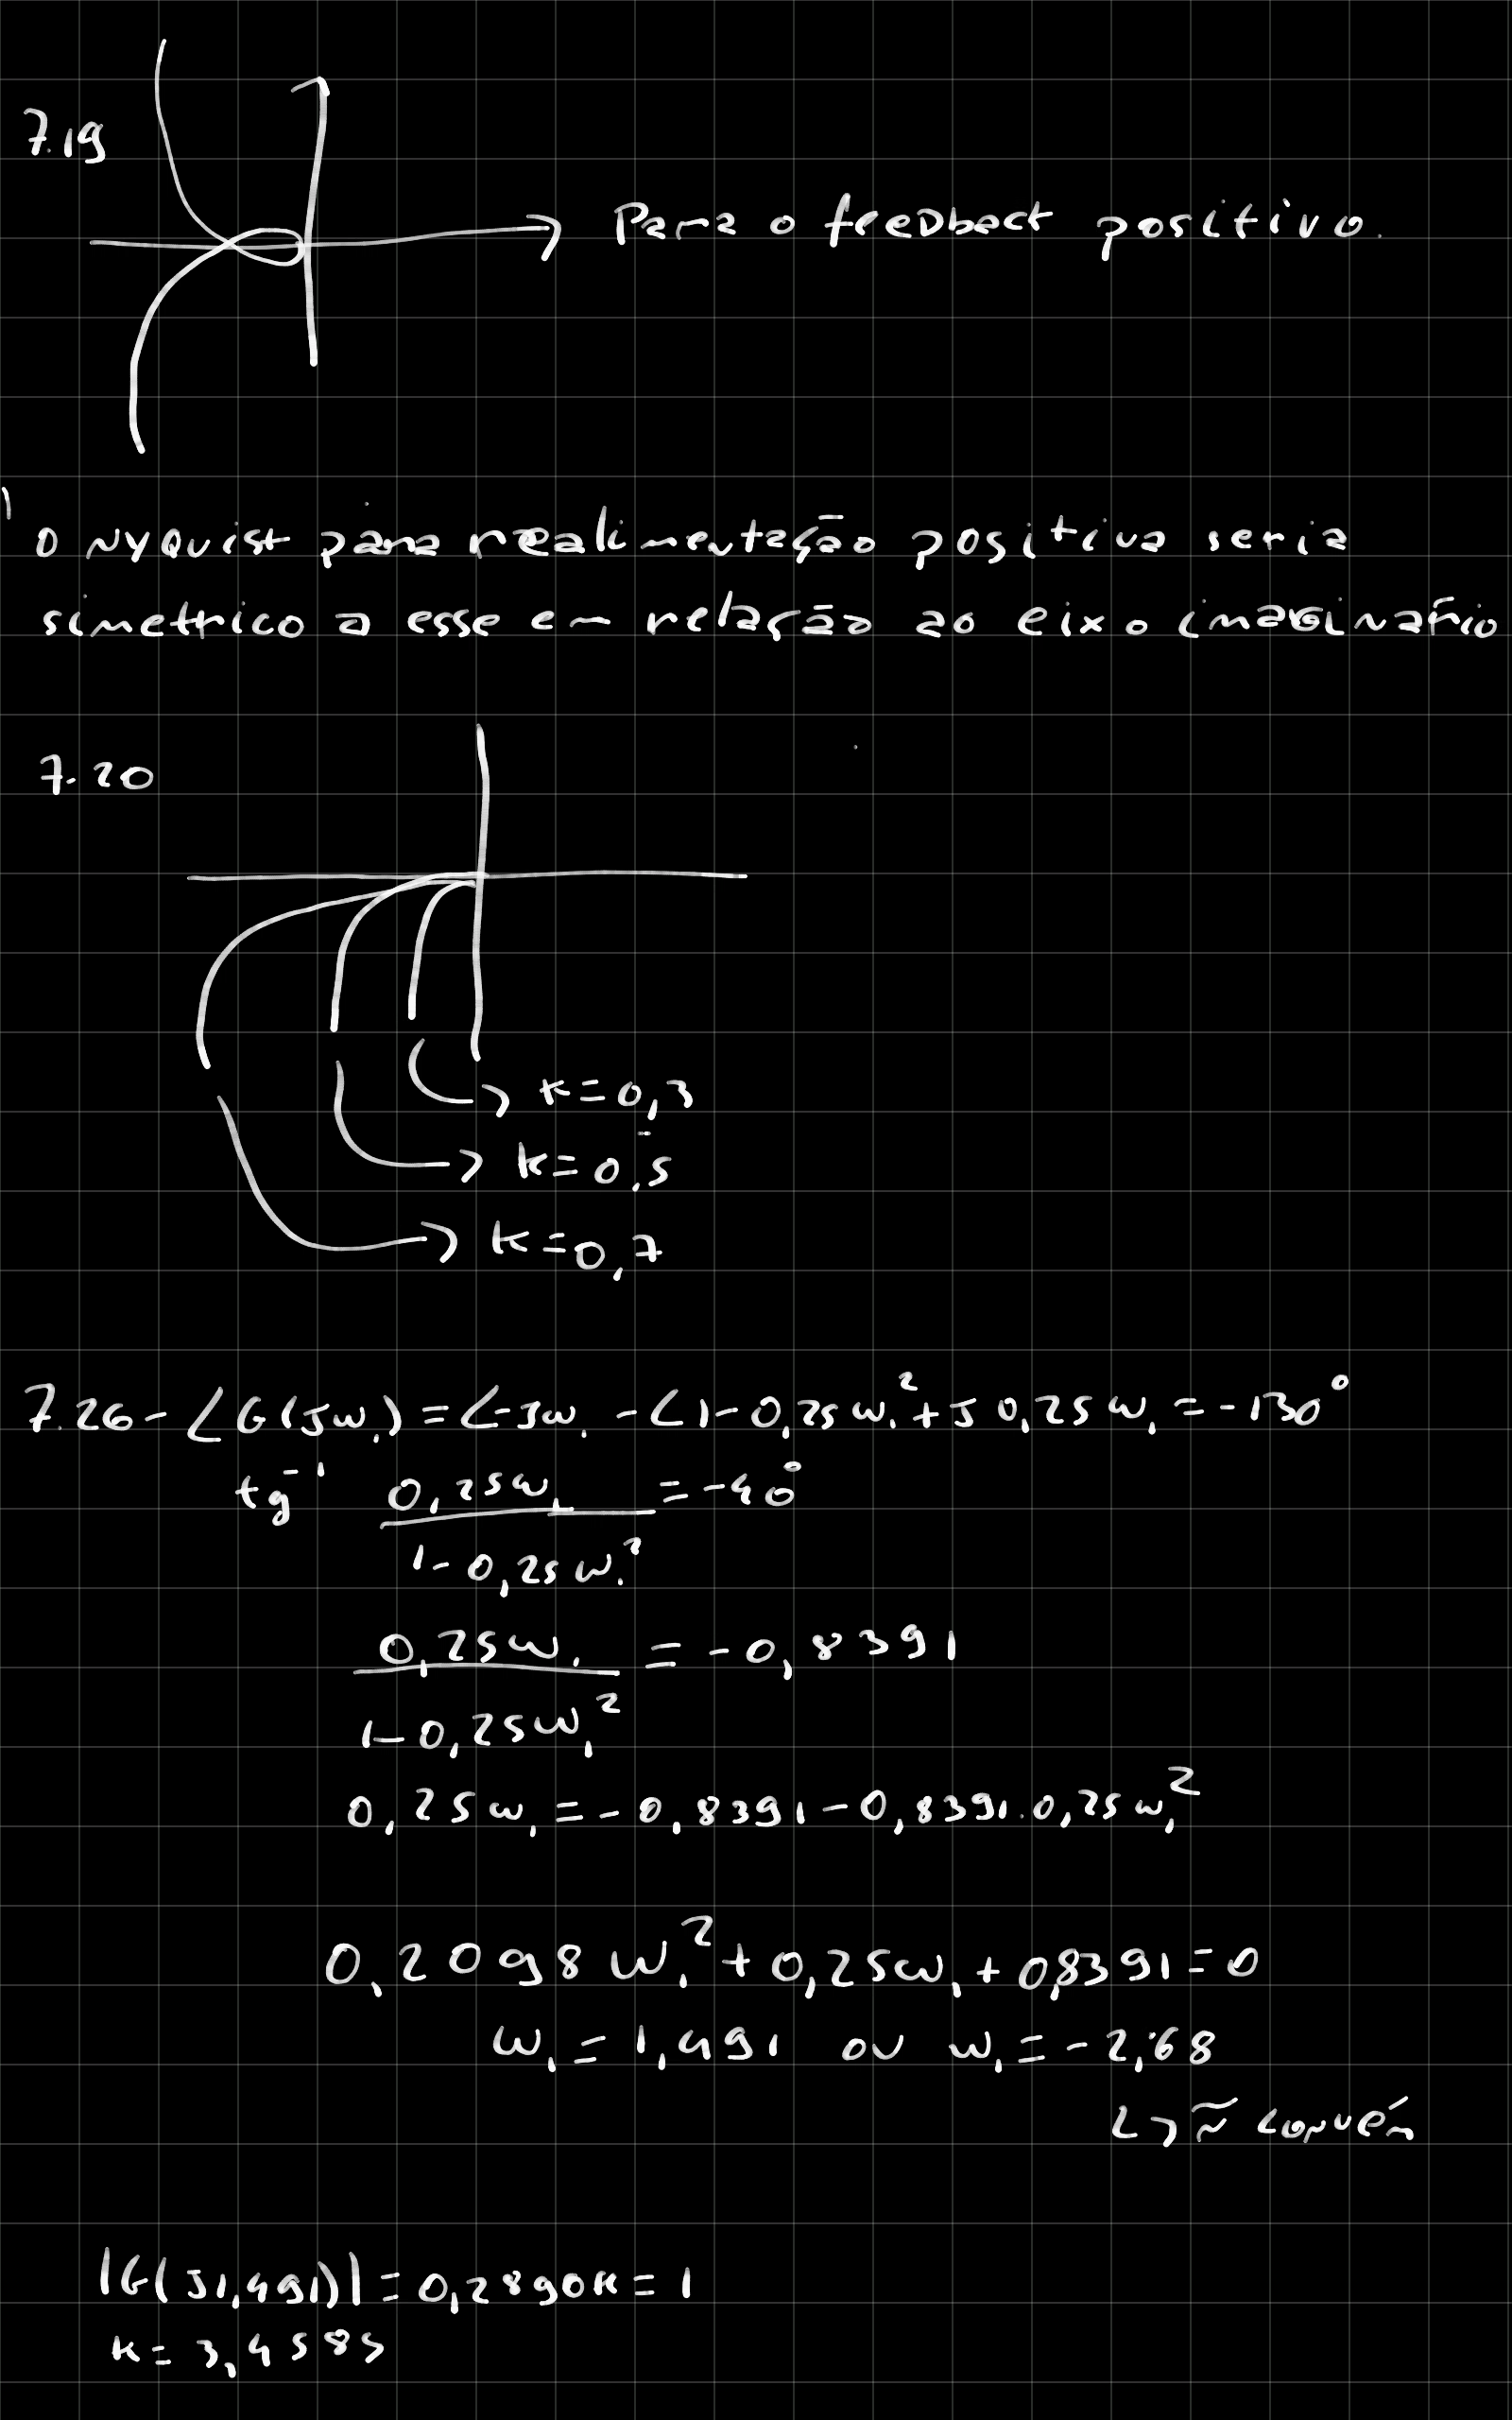 7.19
Para o feedback positivo.
O Nyquist para realimentação positiva seria
simetrico a esse em relação ao eixo imaginário
7.20
k=0,3
k=0,5
k=0,7
7.26 - ∠G(Jω₁) = ∠-Jω₁ - ∠1-0,25ω₁²+J0,25ω₁ = -130°
tg⁻¹ 0,25ω₁ / 1-0,25ω₁² = -40°
0,25ω₁ / 1-0,25ω₁² = -0,8391
0,25ω₁ = -0,8391-0,8391.0,25ω₁²
0,2098ω₁²+0,25ω₁+0,8391=0
ω₁ = 1,491 ou ω₁ = -2,68
↳ ñ convém
|G(J1,491)| = 0,2890k = 1
k = 3,4585